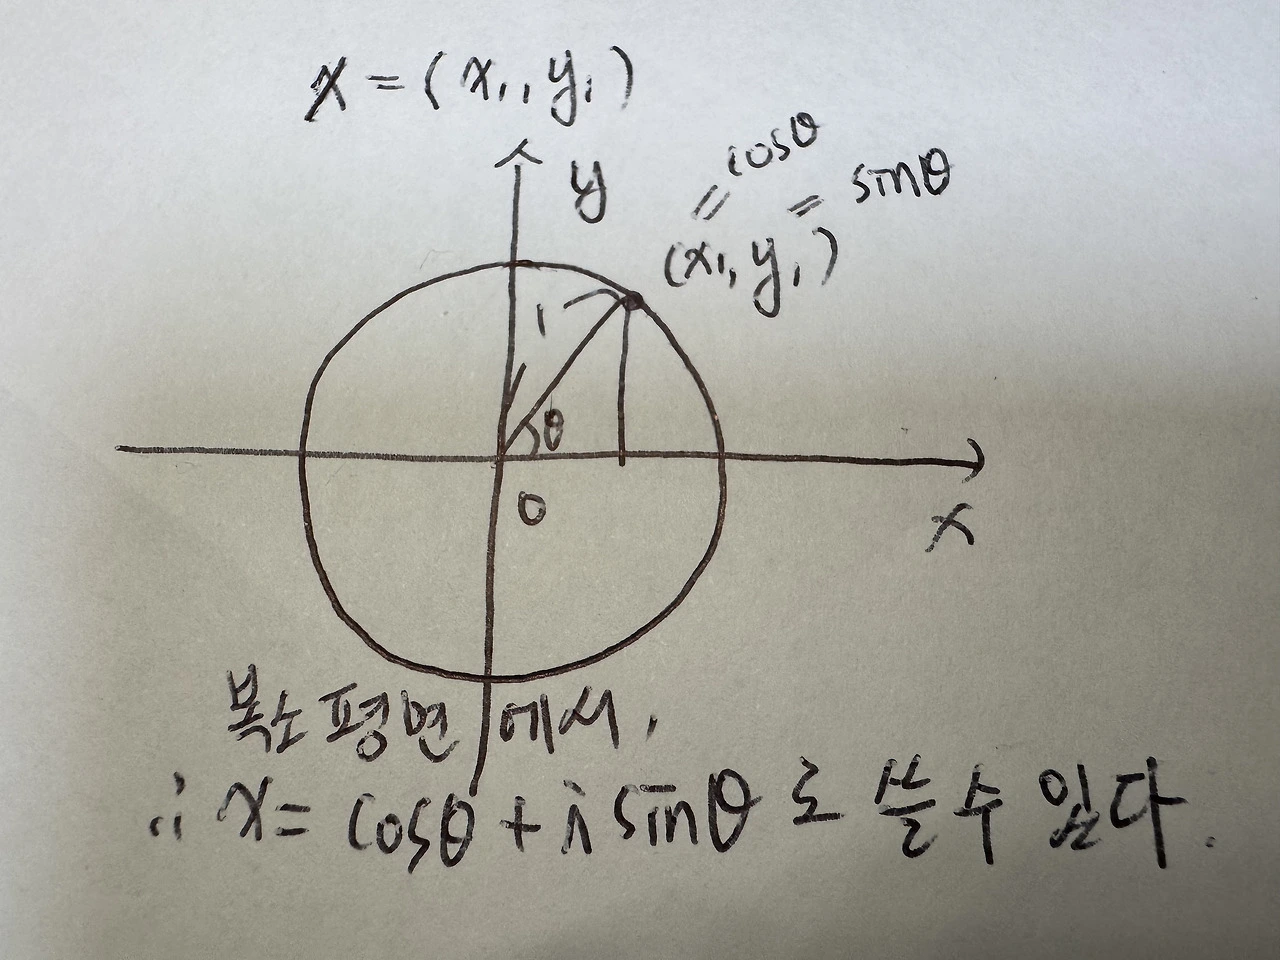 x = (x₁, y₁)
y
cosθ
= = sinθ
(x₁, y₁)
1
θ
0
x
복소평면에서,
∴ x = cosθ + i sinθ 로 쓸 수 있다.